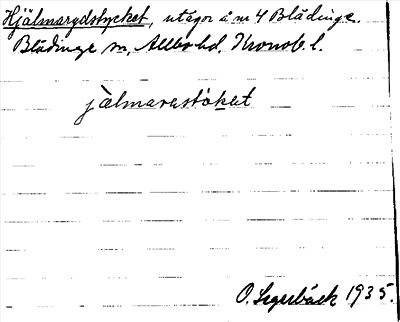 Hjälmarydstycket, utägor å nr 4 Blädinge.
Blädinge sn, Allbo hd, Kronob. l.
jälmarastöket
O. Segerbäck 1935.